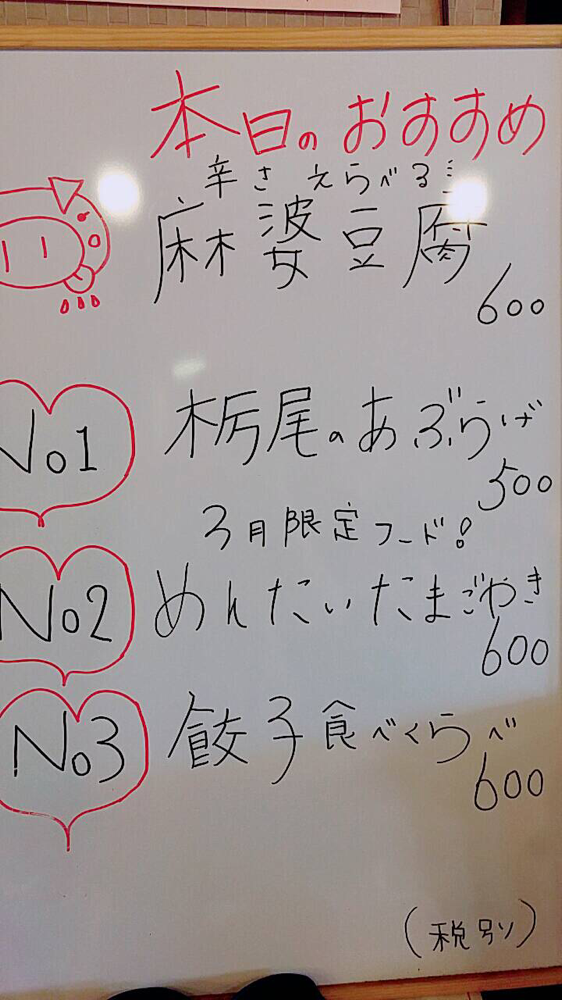 本日のおすすめ
辛さえらべる
麻婆豆腐
600
No1
栃尾のあぶらげ
500
3月限定フード!
No2
めんたいたまごやき
600
No3
餃子食べくらべ
600
(税別)